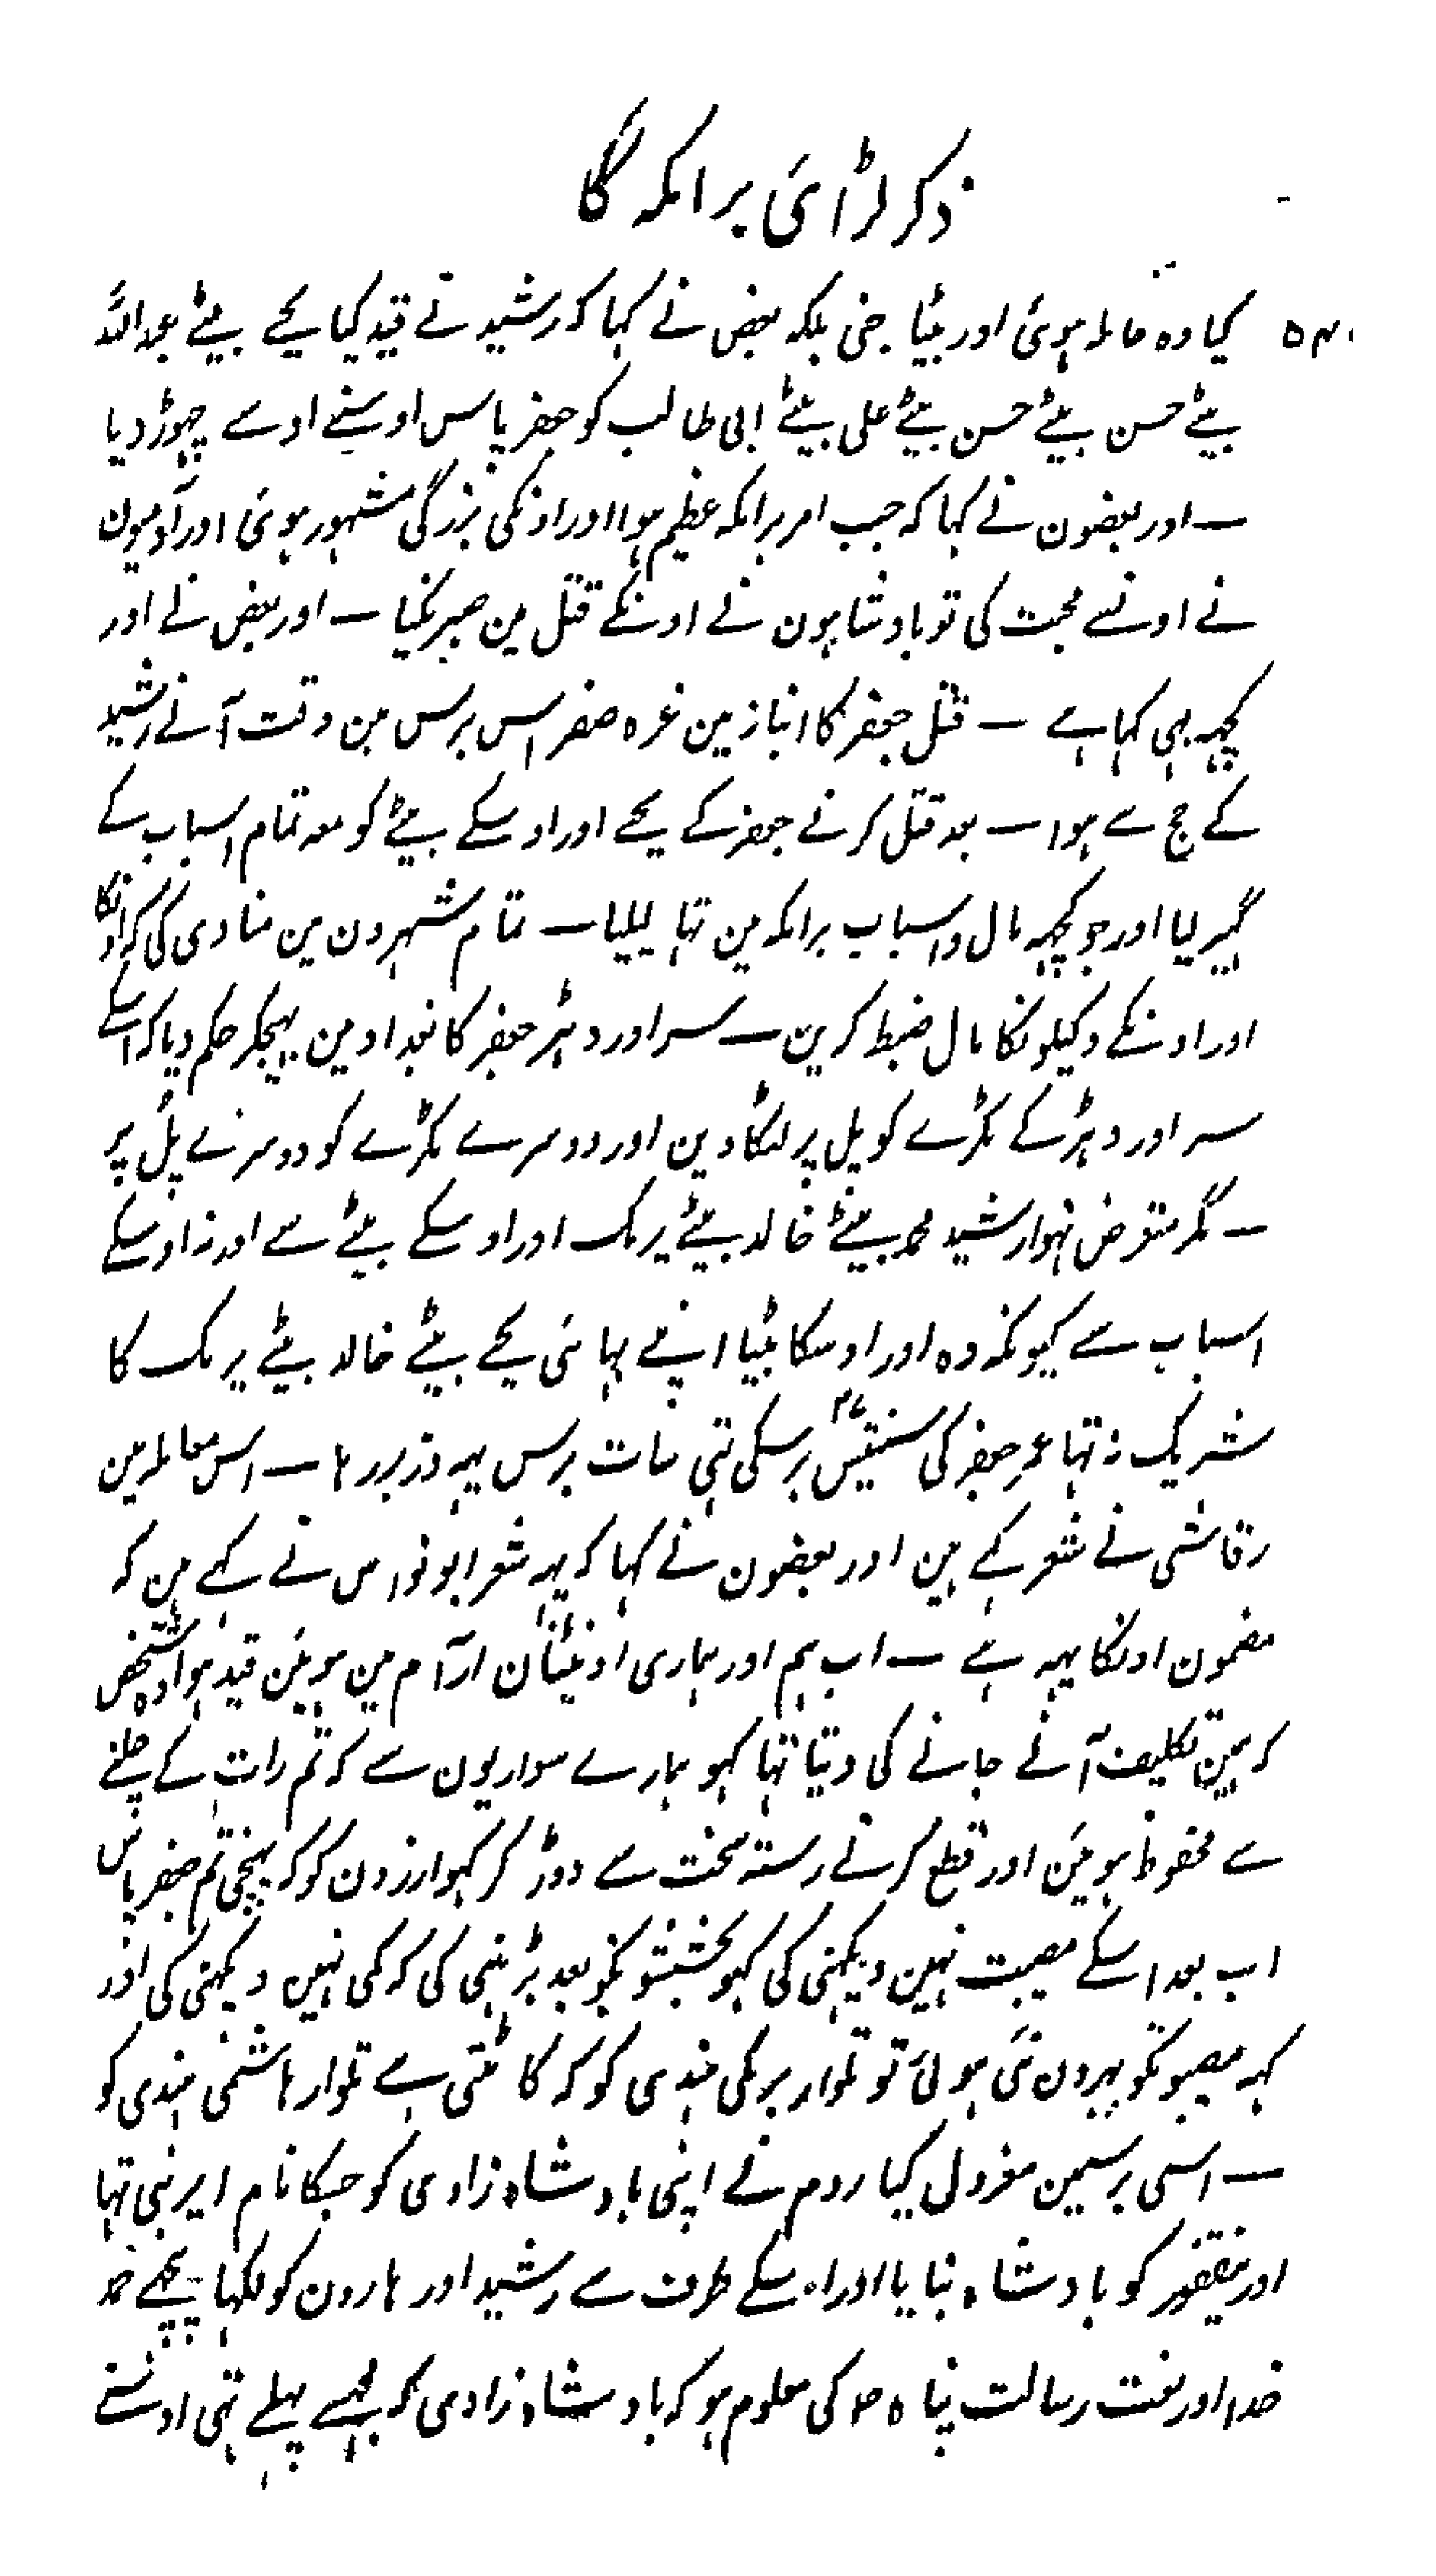 ذکر لڑائی برامکہ کا
۵۴۰
کیا وہ حاملہ ہوئی اور بیٹا جنی بلکہ بعض نے کہا کہ رشید نے قید کیا یحے بیٹے عبد اللہ
بیٹے حسن بیٹے حسن بیٹے علی بیٹے ابی طالب کو جعفر پاس اوسنے اوسے چھوڑ دیا
ــ اور بعضون نے کہا کہ جب امر برامکہ عظیم ہوا اور اونکی بزرگی مشہور ہوئی اور آدمیون
نے اونسے محبت کی تو بادشاہون نے اونکے قتل مین صبر نکیا ــ اور بعض نے اور
کچہہ بہی کہا ہے ــ قتل جعفر کا انبار مین غرہ صفر اس برس مین وقت آنے رشید
کے حج سے ہوا ــ بعد قتل کرنے جعفر کے یحے اور اوسکے بیٹے کو معہ تمام اسباب کے
گہیر لیا اور جو کچہہ مال و اسباب برامکہ مین تہا لیلیا ــ تمام شہرون مین منادی کی کہ اونکا
اور اونکے وکیلونکا مال ضبط کرین ــ سر اور دہڑ جعفر کا بغداد مین بہیجکر حکم دیا کہ اسکے
سر اور دہڑ کے ٹکڑے کو پل پر لٹکا دین اور دوسرے ٹکڑے کو دوسرے پل پر
ــ مگر متعرض نہوا رشید محمد بیٹے خالد بیٹے برمک اور اوسکے بیٹے سے اور نہ اوسکے
اسباب سے کیونکہ وہ اور اوسکا بیٹا اپنے بہائی یحے بیٹے خالد بیٹے برمک کا
شریک نہ تہا عمر جعفر کی سنتیس ۳۷ برسکی تہی سات برس یہہ وزیر رہا ــ اس معاملہ مین
رقاشی نے شعر کہے ہین اور بعضون نے کہا کہ یہہ شعر ابو نواس نے کہے ہین کہ
مضمون اونکا یہہ ہے ــ اب ہم اور ہماری اونٹنیان آرام مین ہوئین قید ہوا وہ شخص
کہ ہمین تکلیف آنے جانے کی دیتا تہا کہو ہمارے سواریون سے کہ تم رات کے چلنے
سے محفوظ ہوئین اور قطع کرنے رستہ سخت سے دوڑ کر کہو ارزون کو کہ پہنچی تم جعفر پاس
اب بعد اسکے مصیبت نہین دیکہنی کی کہو بخششونکو بعد بڑہنی کی کہ کمی نہین دیکہنی کی اور
کہہ مصیبونکو ہرون نئی ہوئی تو تلوار برمکی ہندی کو کہ کاٹتی ہے تلوار ہاشمی ہندی کو
ــ اسی برسمین معزول کیا روم نے اپنی بادشاہ زادی کو جسکا نام ایرنی تہا
اور نیقفور کو بادشاہ بنایا اور اوسکے طرف سے رشید اور ہارون کو لکہا پیچہے حمد
خدا اور نعت رسالت پناہ ص کی معلوم ہو کہ بادشاہ زادی کہ مجہسے پہلے تہی اوسنے